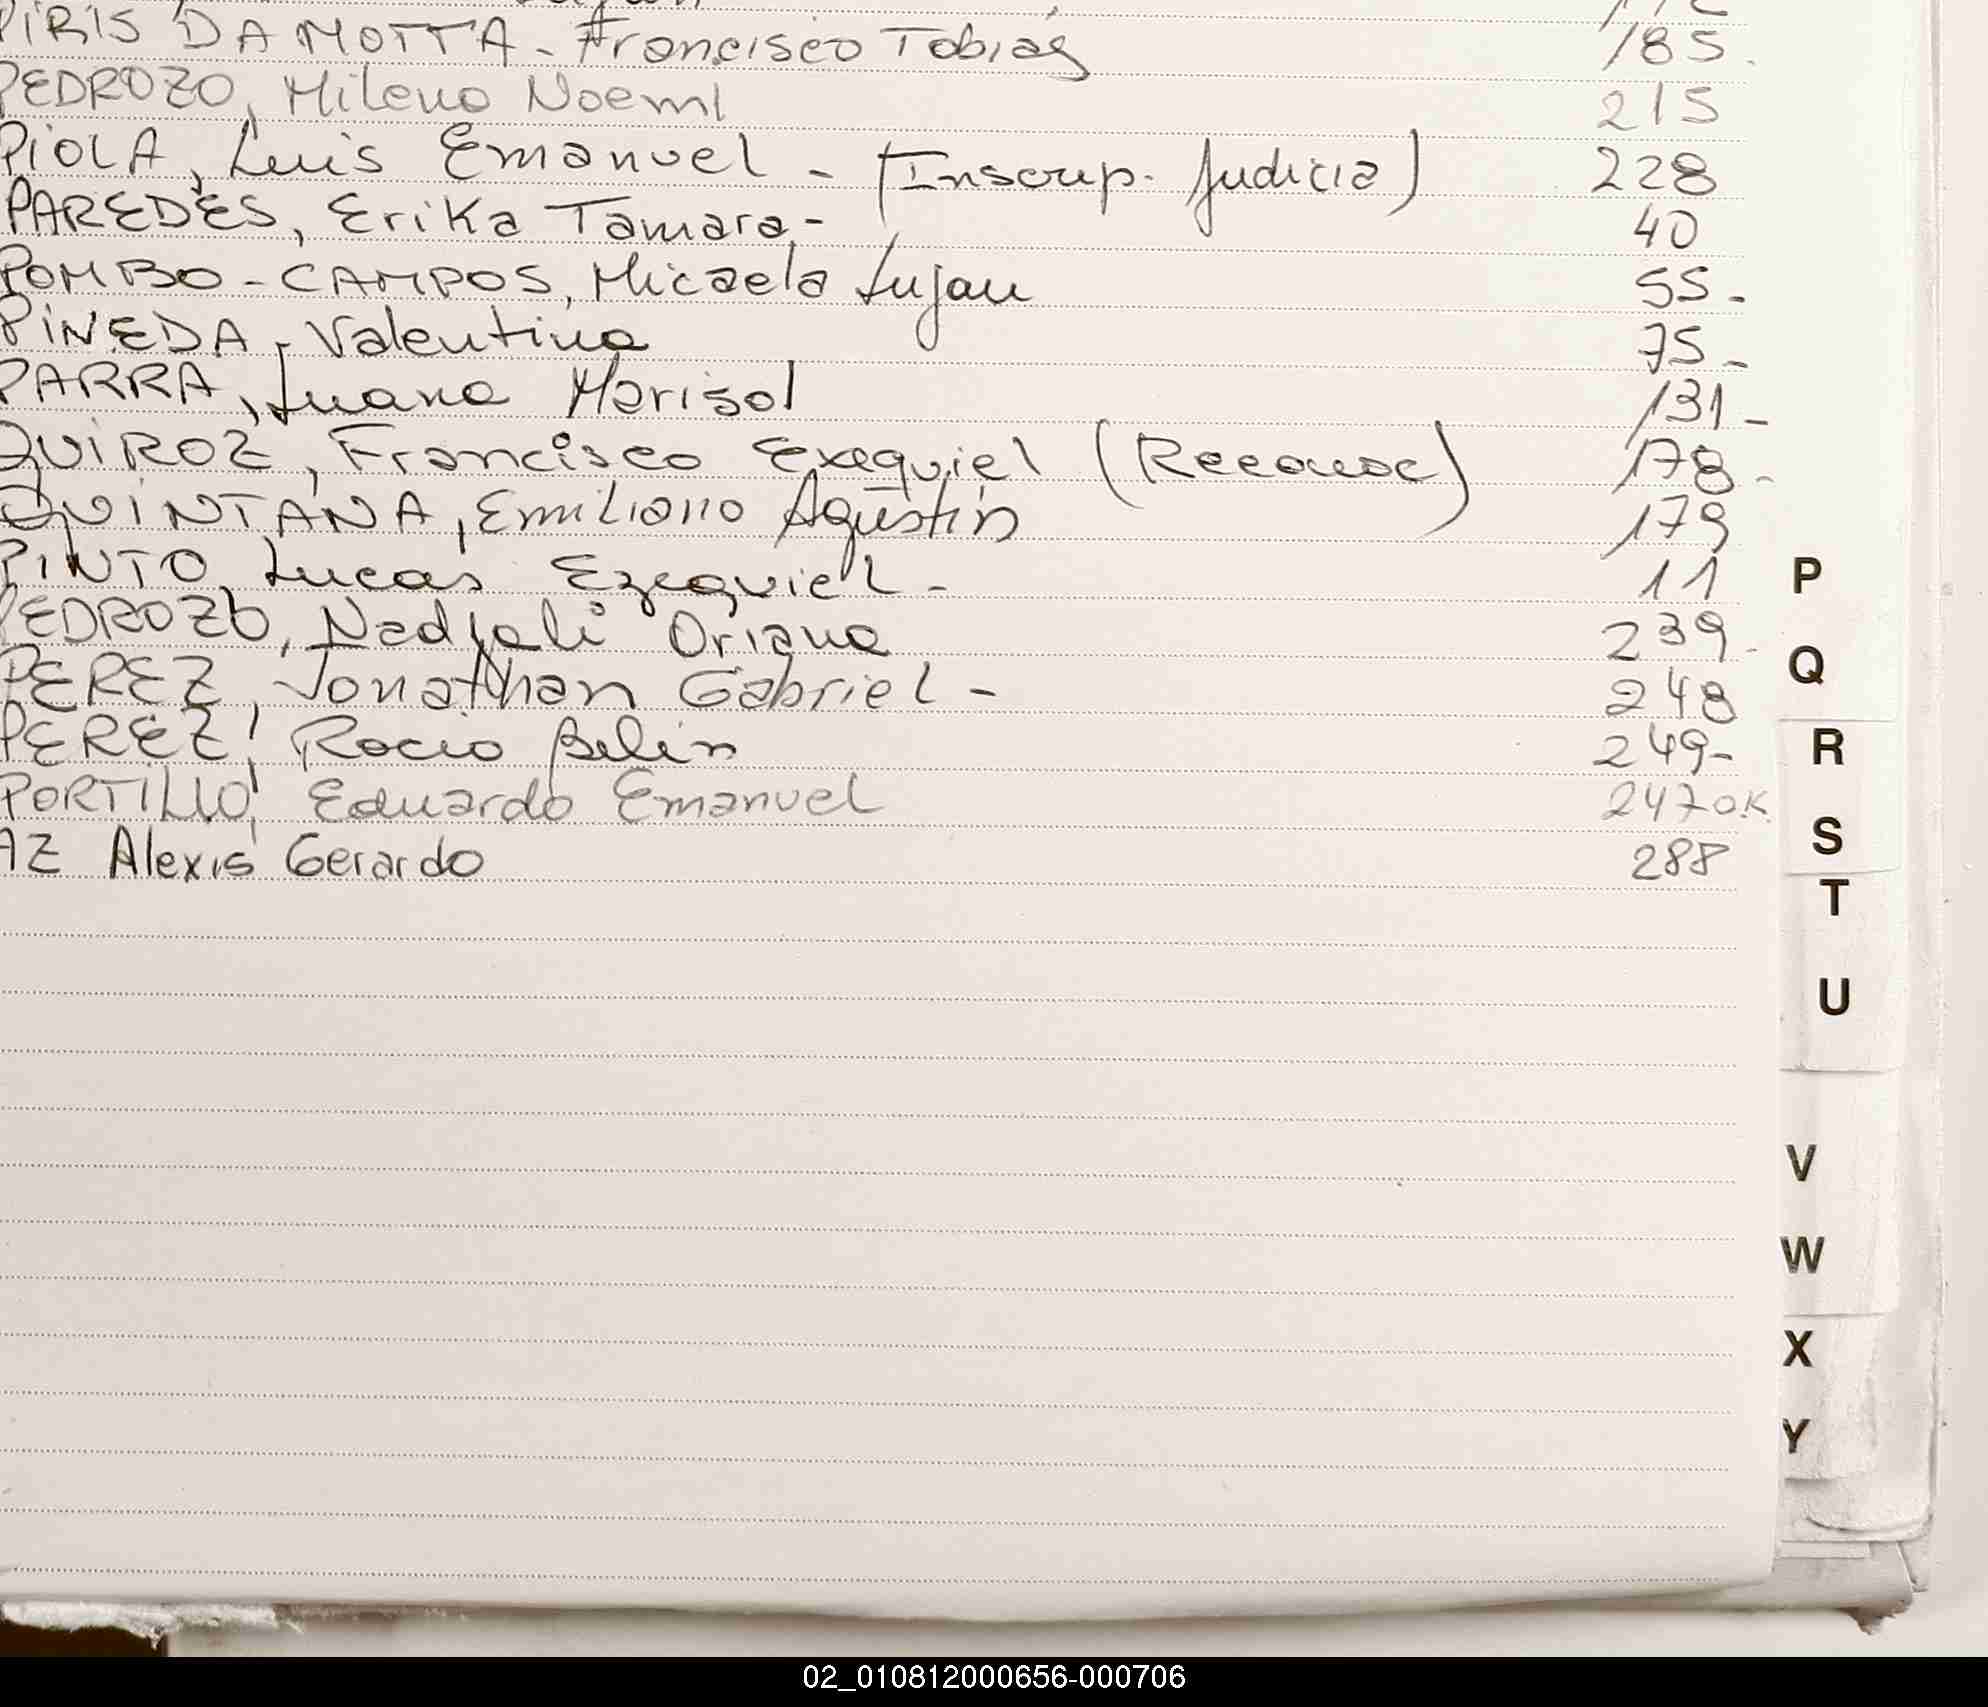 PIRIS DA MOTTA - Francisco Tobías 185.
PEDROZO, Milena Noemí 215
PIOLA, Luis Emanuel - (Inscrip. Judicia) 228
PAREDES, Erika Tamara - 40
POMBO - CAMPOS, Micaela Lujan 55 -
PINEDA, Valentina 75 -
PARRA, Luana Marisol 131 -
QUIROZ, Francisco Exequiel (Reconoc) 178 -
QUINTANA, Emiliano Agustín 179
PINTO, Lucas Ezequiel - 11
PEDROZO, Oriana 239 -
PEREZ, Jonathan Gabriel - 248
PEREZ, Rocio Belén 249 -
PORTILLO, Eduardo Emanuel 247 OK.
AZ Alexis Gerardo 288
P
Q
R
S
T
U
V
W
X
Y
02_010812000656-000706